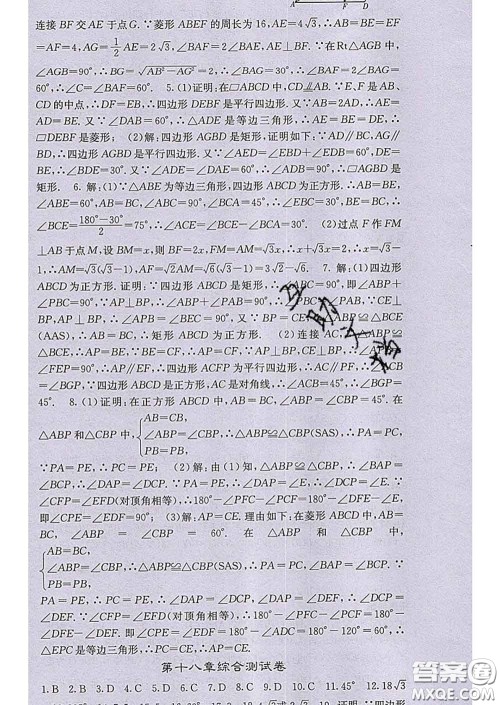 F D
连接 BF 交 AE 于点 G. ∵菱形 ABEF 的周长为 16, AE=4√3, ∴AB=BE=EF
=AF=4, AG=1/2 AE=2√3, ∠BAF=2∠BAE, AE⊥BF. ∵在Rt△AGB 中,
∠AGB=90°, ∴BG=√(AB²-AG²)=2, ∴∠BAG=30°, ∴∠BAF=2∠BAE=
60°, ∴∠C=∠BAF=60°. 5.(1)证明:在▱ABCD 中, CD∥AB. ∵E、F 是 AB、
CD 的中点, ∴DF=EB, ∴四边形 DEBF 是平行四边形. 又∵AB=2AD, ∴AE=
AD=BE. 又∵∠DAB=60°, ∴△ADE 是等边三角形, ∴AE=BE=DE, ∴
▱DEBF 是菱形; (2)解:四边形 AGBD 是矩形, 证明如下: ∵AD∥BC, AG∥BD,
∴四边形 AGBD 是平行四边形. 又∵∠AED=∠EBD+∠EDB=60°, DE=
BE, ∴∠EBD=30°. 又∵∠DAB=60°, ∴∠ADB=90°, ∴▱AGBD 是
矩形. 6. 解:(1)∵△ABE 为等边三角形, 四边形 ABCD 为正方形. ∴AB=BE=
BC, ∠ABE=60°, ∠ABC=90°, ∴∠ACB=45°, ∠EBC=90°-60°=30°, ∴
∠BCE=(180°-30°)/2=75°, ∴∠ACE=∠BCE-∠BCA=30°. (2)过点 F 作 FM
⊥AB 于点 M, 设 BM=x, 则 BF=2x, AM=FM=√3x, ∴x+√3x=2, ∴x=√3-
1, ∴AM=√3(√3-1), AF=√2AM=√6(√3-1)=3√2-√6. 7. 解:(1)四边形
ABCD 为正方形. 证明: ∵四边形 ABCD 是矩形, ∴∠ABC=90°, 即∠ABP+
∠PBC=90°, ∵AP⊥BP, ∴∠ABP+∠PAB=90°, ∴∠PAB=∠PBC, ∵CE⊥
BP, AP⊥BP, ∴∠APB=∠BEC=90°. 又∵BP=CE, ∴△ABP≌△BCE
(AAS), ∴AB=BC, ∴矩形 ABCD 为正方形. (2)连接 AC, △ABP≌
△BCE, ∴AP=BE. 又∵EF=BE, ∴AP=EF. ∵AP⊥BP, CE⊥BP, ∴∠APF=
∠FEP=90°, ∴AP∥EF, ∴四边形 ACFP 为平行四边形. ∴AC∥PF, ∴∠ACB
=∠BGP. ∵四边形 ABCD 是正方形, AC 是对角线, ∴∠ACB=45°, ∴∠BGP=
45°. 8.(1)证明:在正方形 ABCD 中, AB=BC, ∠ABP=∠CBP=45°. 在
△ABP 和△CBP 中, { AB=CB,
∠ABP=∠CBP, ∴△ABP≌△CBP(SAS), ∴PA=PC.
PB=PB,
∵PA=PE, ∴PC=PE; (2)解:由(1)知, △ABP≌△CBP, ∴∠BAP=
∠BCP, ∴∠DAP=∠DCP. ∵PA=PE, ∴∠DAP=∠E, ∴∠DCP=∠E. ∵
∠CFP=∠EFD(对顶角相等), ∴180°-∠PFC-∠PCF=180°-∠DFE-∠E,
即∠CPE=∠EDF=90°; (3)解:AP=CE. 理由如下:在菱形 ABCD 中, AB=
BC, ∠ABP=∠CBP=60°. 在△ABP 和△CBP 中,
{ AB=BC,
∠ABP=∠CBP, ∴△ABP≌△CBP(SAS), ∴PA=PC, ∠BAP=∠BCP. ∵
PB=PB,
PA=PE, ∴PC=PE, ∴∠DAP=∠DCP, ∴∠DAP=∠DEP, ∴∠DCP
=∠DEF. ∵∠CFP=∠EFD(对顶角相等), ∴180°-∠PFC-∠PCF=180°
-∠DFE-∠DEF, 即∠CPE=∠EDF=180°-∠ADC=180°-120°=60°, ∴
△EPC 是等边三角形, ∴PC=CE, ∴AP=CE.
第十八章综合测试卷
1.B 2.D 3.D 4.C 5.D 6.C 7.D 8.C 9.D 10.C 11.45° 12.18√3
互助文档
答案圈
MXQE.COM